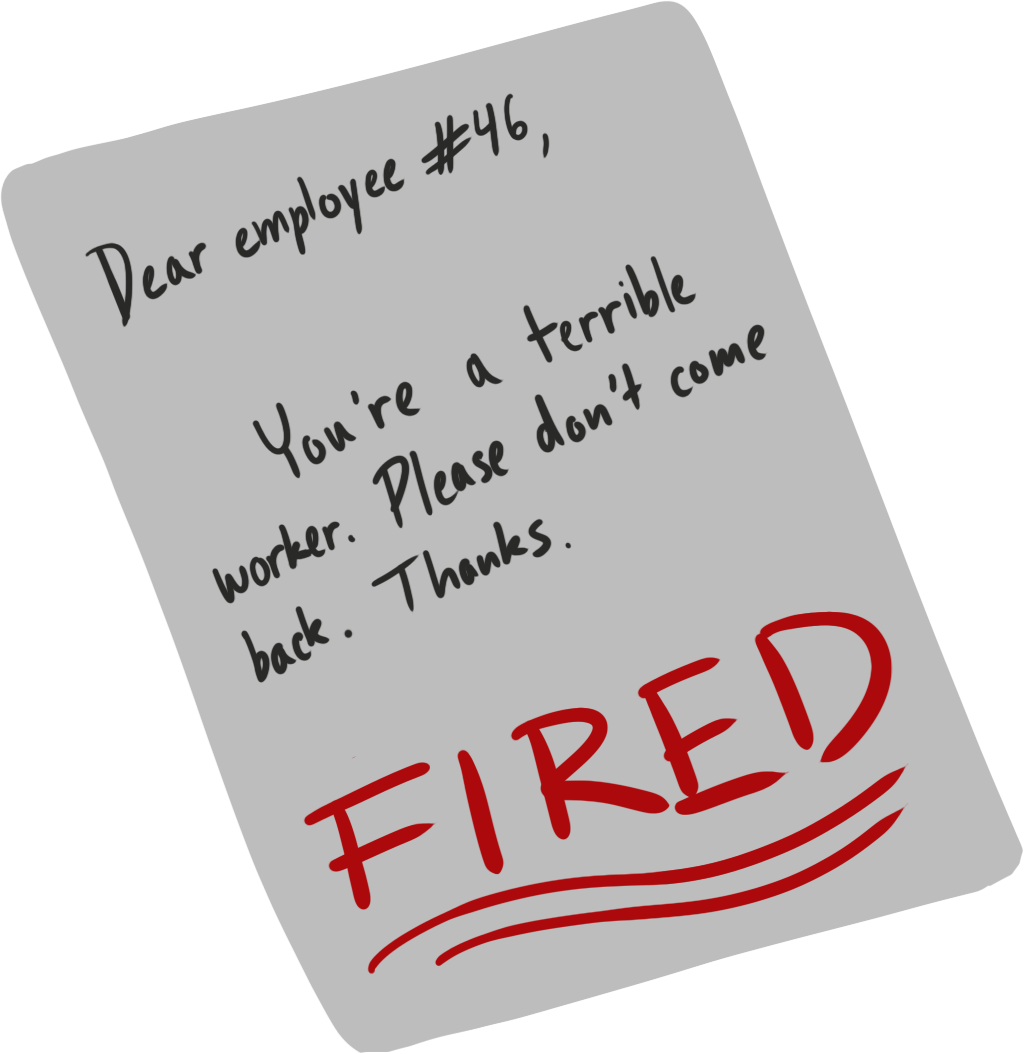 Dear employee #46,
You're a terrible
worker. Please don't come
back. Thanks.
FIRED